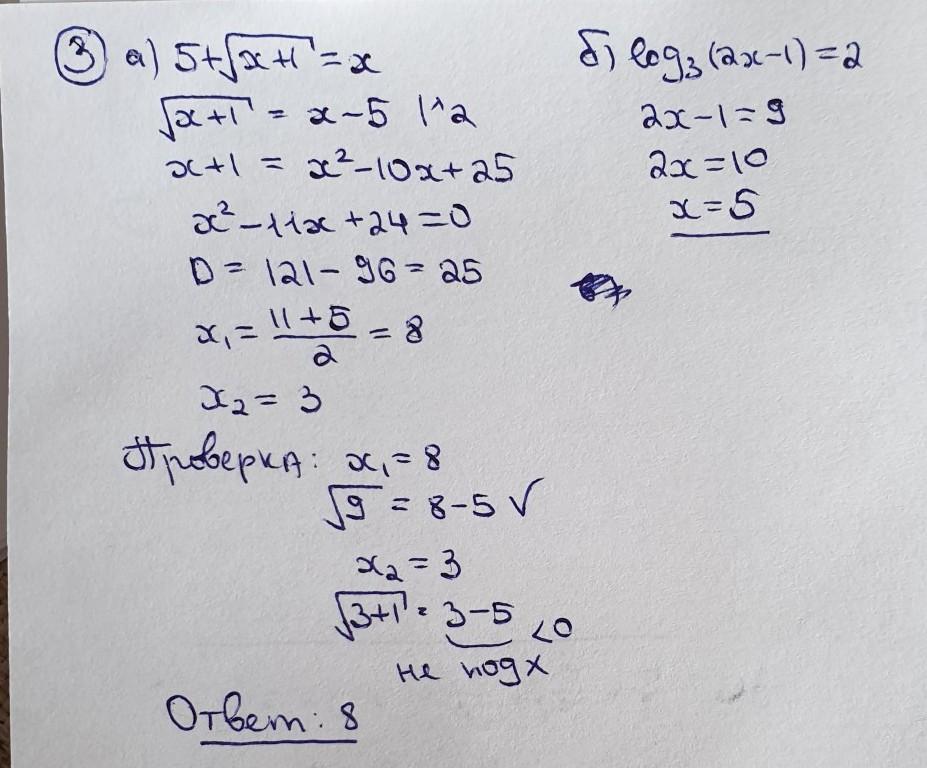 ③ а) 5+√(x+1) = x
√(x+1) = x-5 |^2
x+1 = x²-10x+25
x²-11x+24=0
D = 121-96=25
x₁ = (11+5)/2 = 8
x₂ = 3
Проверка: x₁=8
√9 = 8-5 √
x₂=3
√(3+1) = 3-5 <0
не подх
Ответ: 8
б) log₃(2x-1)=2
2x-1=9
2x=10
x=5